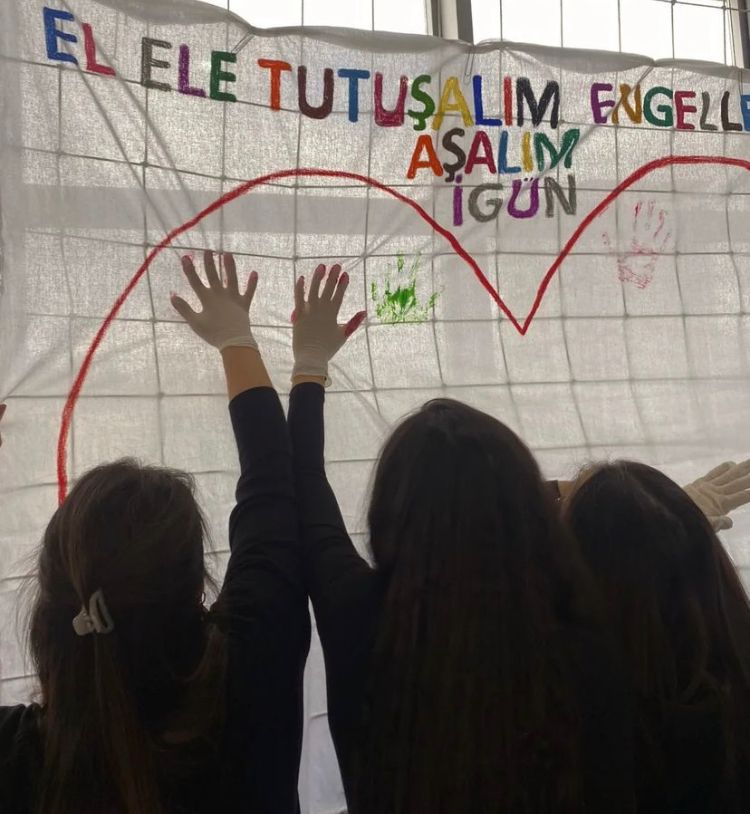 EL ELE TUTUŞALIM ENGELLE
AŞALIM
İGÜN